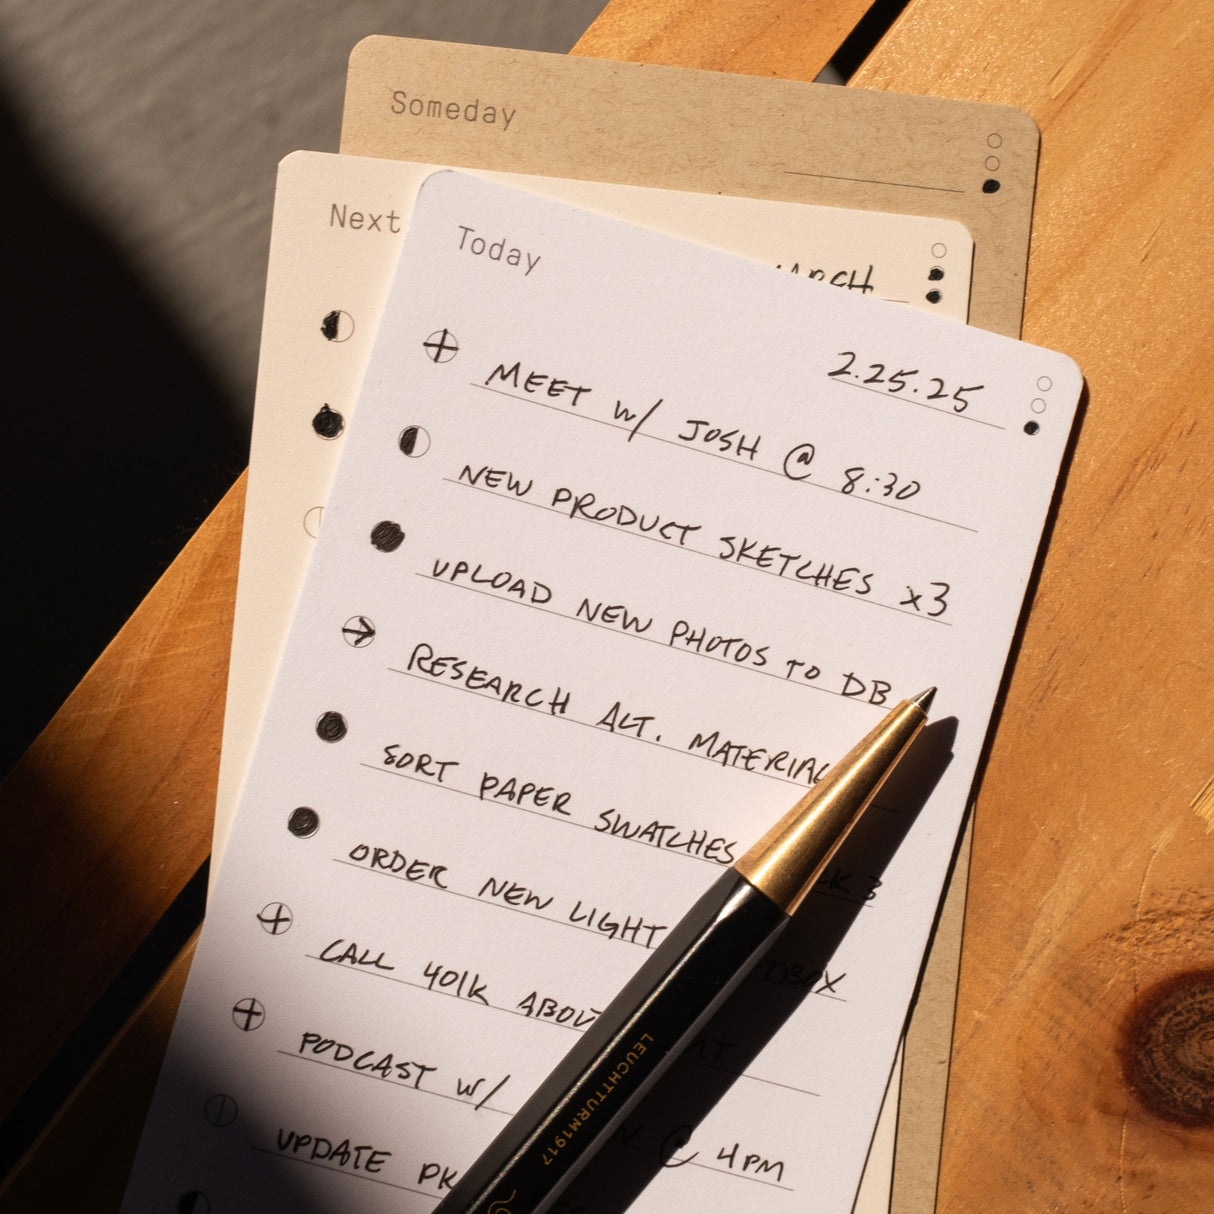 Someday
Next
Today
2.25.25
MEET w/ JOSH @ 8:30
NEW PRODUCT SKETCHES x3
UPLOAD NEW PHOTOS TO DB
RESEARCH ALT.
SORT PAPER SWATCHES
ORDER NEW LIGHT
CALL 401K
PODCAST w/ @ 4PM
UPDATE
LEUCHTTURM1917